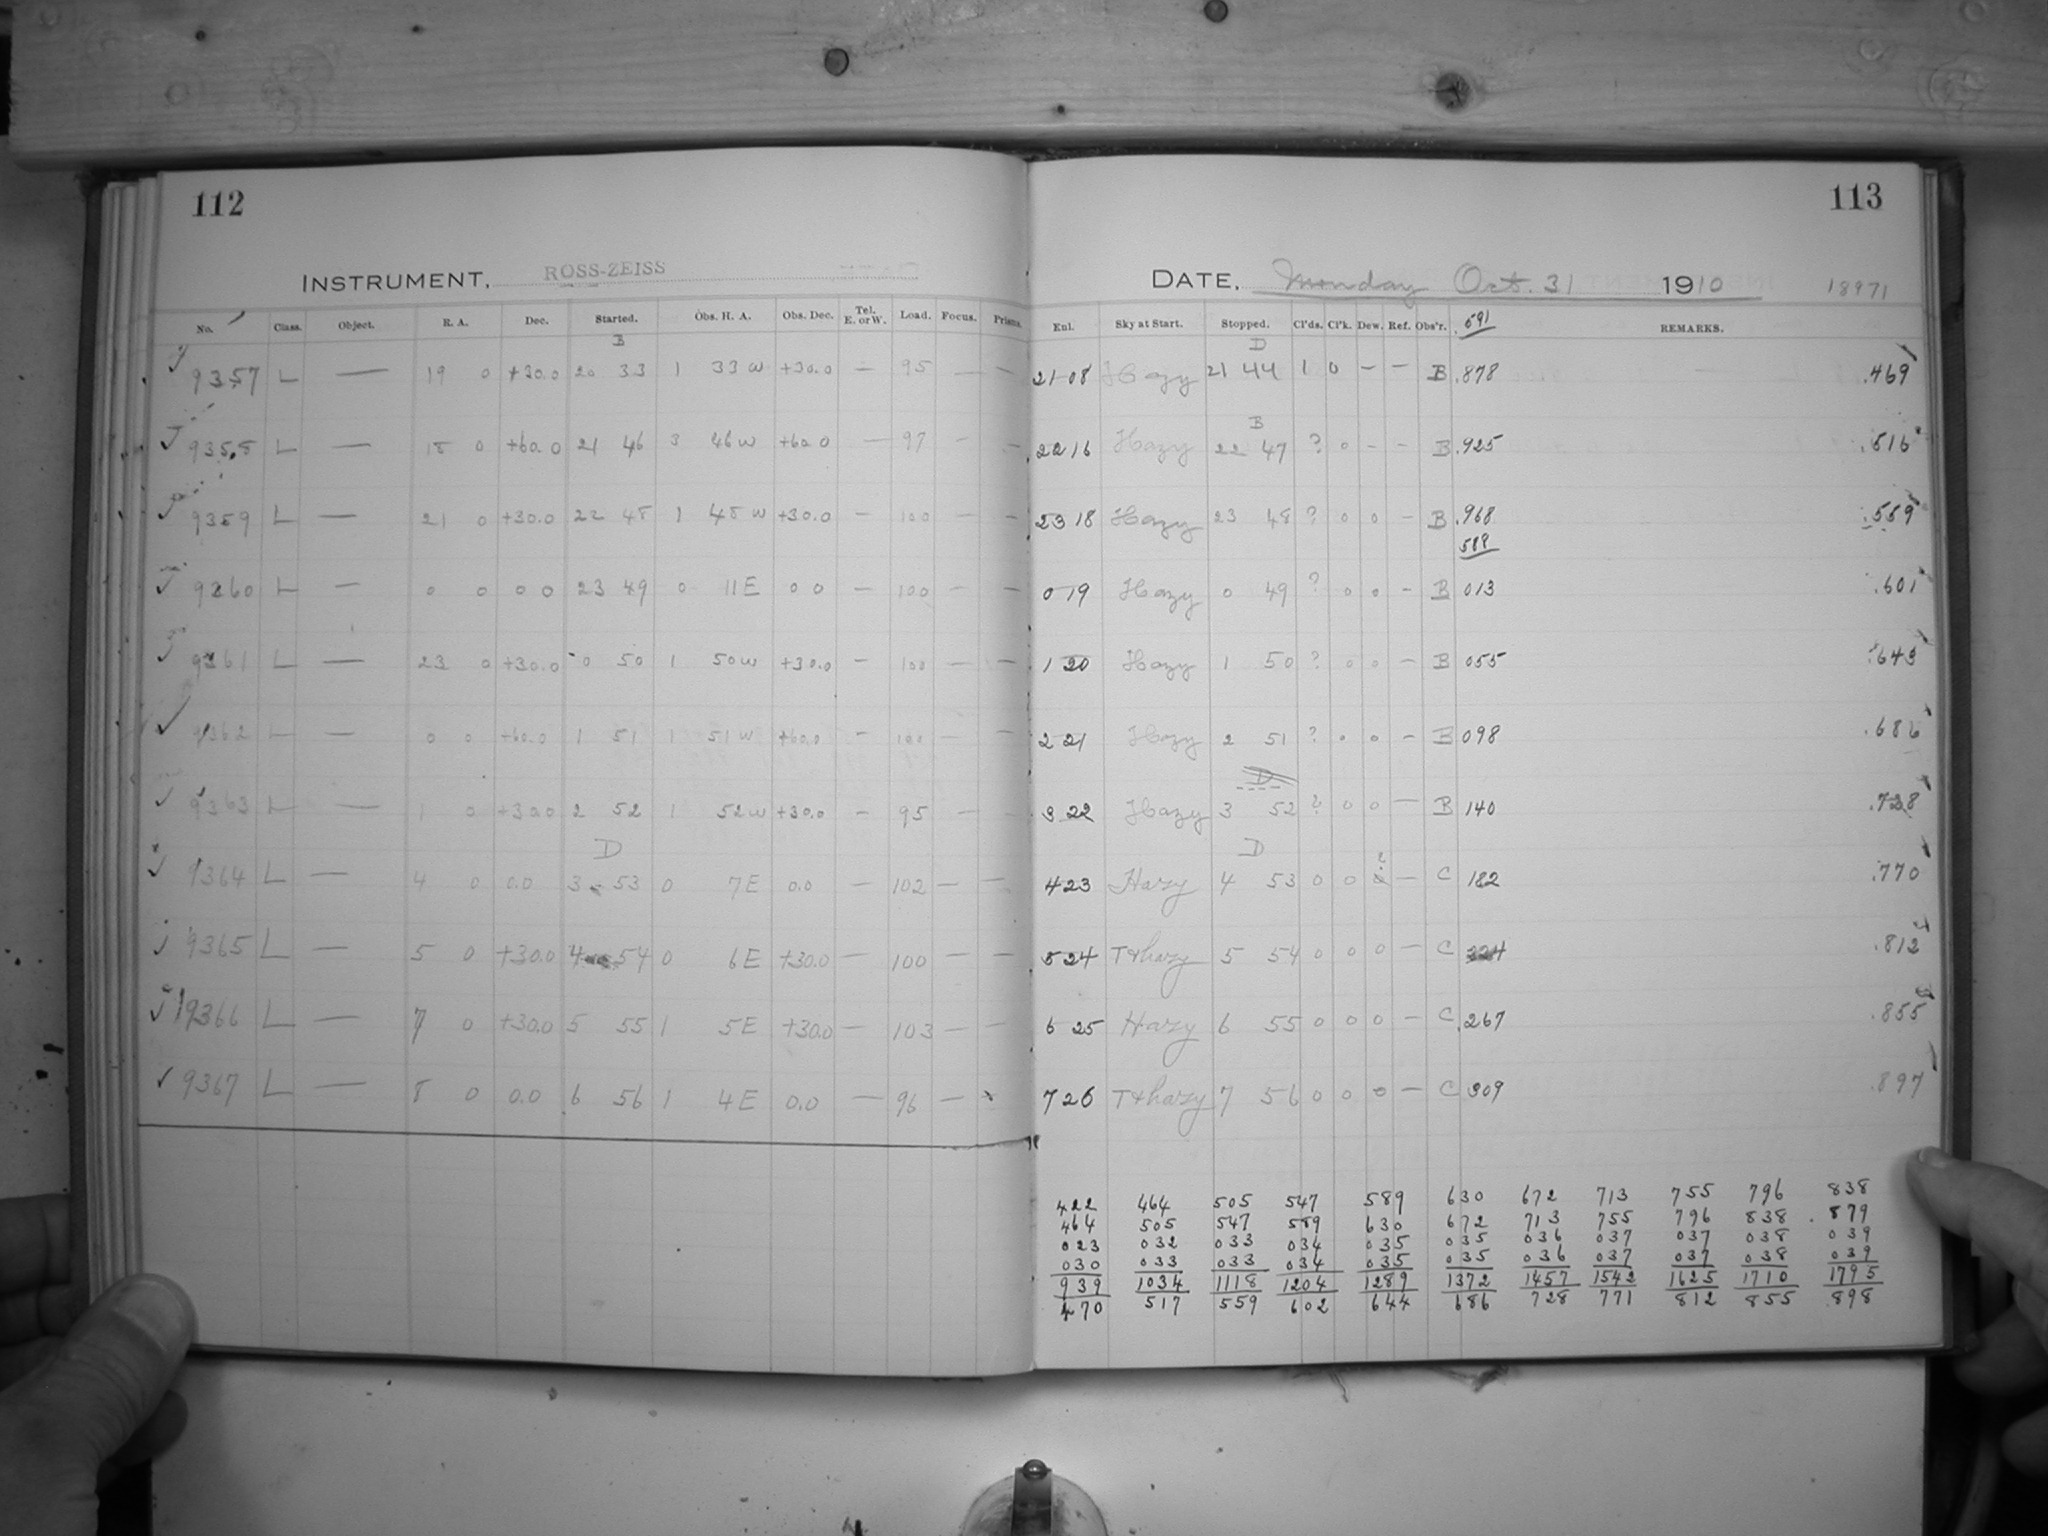 112
INSTRUMENT. ROSS-ZEISS
No. Class. Object. R. A. Dec. Started. Obs. H. A. Obs. Dec. Tel. E. or W. Load. Focus. Prisms.
B
9357 L — 19 0 +30.0 20 33 1 33 W +30.0 — 95 — —
9358 L — 18 0 +60.0 21 46 3 46 W +60.0 — 97 — —
9359 L — 21 0 +30.0 22 48 1 48 W +30.0 — 100 — —
9360 L — 0 0 0 0 23 49 0 11 E 0 0 — 100 — —
9361 L — 23 0 +30.0 0 50 1 50 W +30.0 — 100 — —
9362 L — 0 0 +60.0 1 51 1 51 W +60.0 — 100 — —
9363 L — 1 0 +30.0 2 52 1 52 W +30.0 — 95 — —
D
9364 L — 4 0 0.0 3 53 0 7 E 0.0 — 102 — —
9365 L — 5 0 +30.0 4 54 0 6 E +30.0 — 100 — —
9366 L — 7 0 +30.0 5 55 1 5 E +30.0 — 103 — —
9367 L — 8 0 0.0 6 56 1 4 E 0.0 — 96 —
113
DATE. Monday Oct. 31 1910 18971
Enl. Sky at Start. Stopped. Cl'ds. Cl'k. Dew. Ref. Obs'r. .591 REMARKS.
D
21 08 Hazy 21 44 1 0 — — B .878 .469
B
22 16 Hazy 22 47 ? 0 — — B .925 .516
23 18 Hazy 23 48 ? 0 0 — B .968 .559
589
0 19 Hazy 0 49 ? 0 0 — B 013 .601
1 20 Hazy 1 50 ? 0 0 — B 055 .643
2 21 Hazy 2 51 ? 0 0 — B 098 .686
D
3 22 Hazy 3 52 ? 0 0 — B 140 .728
D
4 23 Hazy 4 53 0 0 ? — C 182 .770
5 24 T+hazy 5 54 0 0 0 — C 224 .812
6 25 Hazy 6 55 0 0 0 — C 267 .855
7 26 T+hazy 7 56 0 0 0 — C 309 .897
422 464 505 547 589 630 672 713 755 796 838
464 505 547 589 630 672 713 755 796 838 .879
023 032 033 034 035 035 036 037 037 038 039
030 033 033 034 035 035 036 037 037 038 039
939 1034 1118 1204 1289 1372 1457 1542 1625 1710 1795
470 517 559 602 644 686 728 771 812 855 898